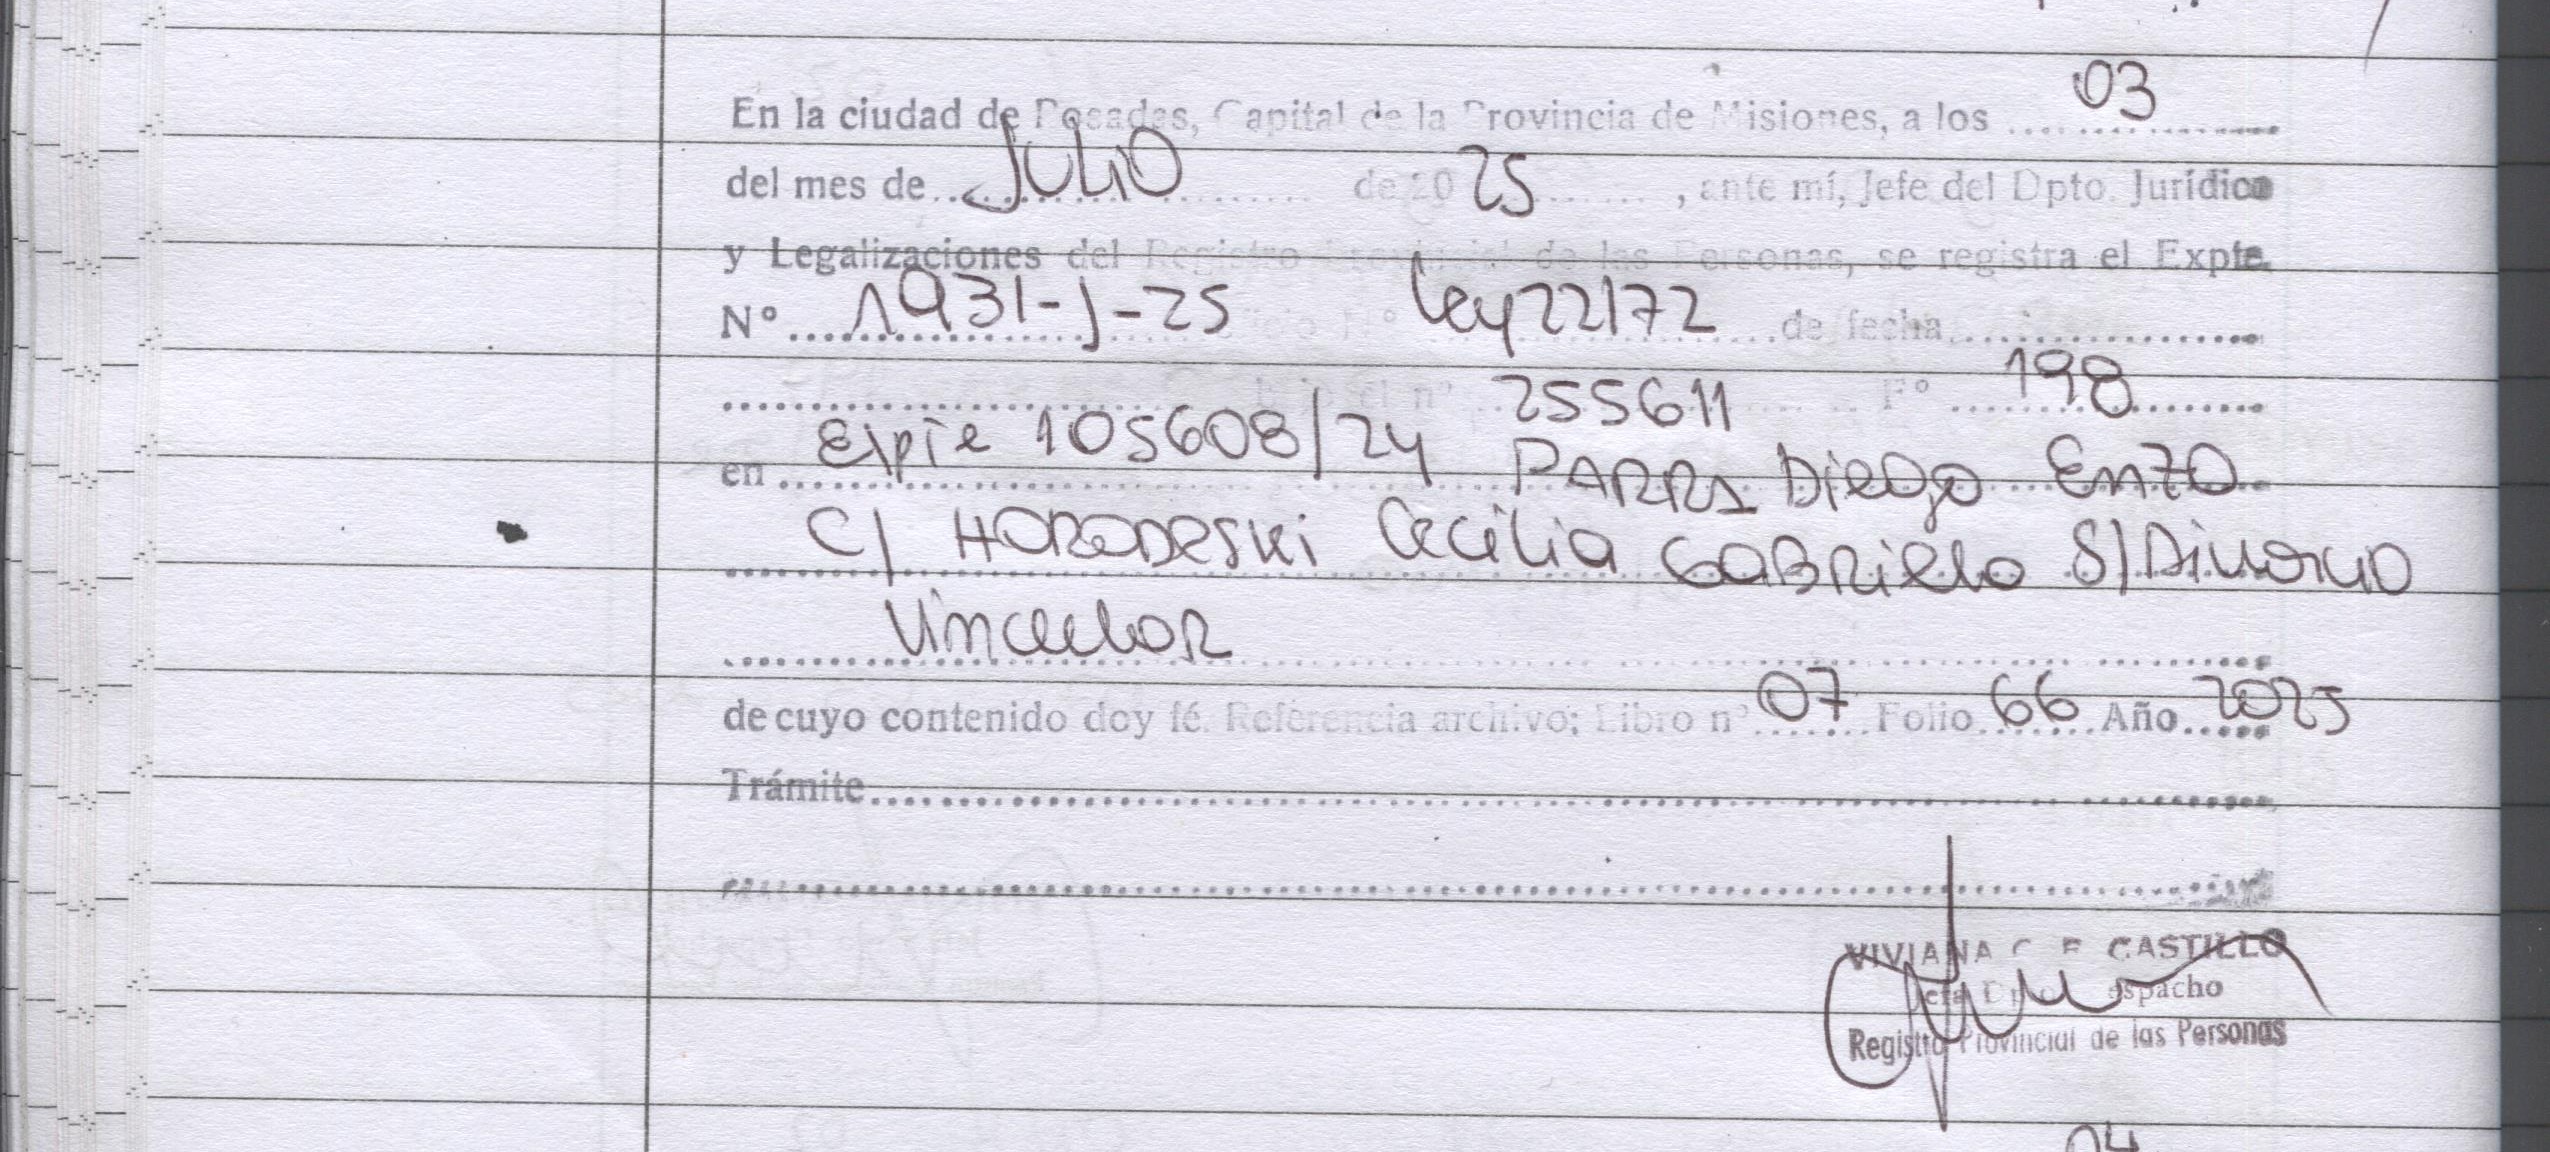 En la ciudad de Posadas, Capital de la Provincia de Misiones, a los 03
del mes de JULIO de 2025, ante mí, Jefe del Dpto. Jurídico
y Legalizaciones del Registro Provincial de las Personas, se registra el Expte.
N° 1931-J-25 Oficio N° ley 22172 de fecha
bajo el n° 255611 F° 198
en Expte 105608/24 PARRA Diego Enzo
C/ HORODESKI Cecilia GABRiela S/ Divorcio
VinculaR
de cuyo contenido doy fé. Referencia archivo: Libro n° 07 Folio 66 Año 2025
Trámite
VIVIANA C. F. CASTILLO
Jefa Dpto. Despacho
Registro Provincial de las Personas
04